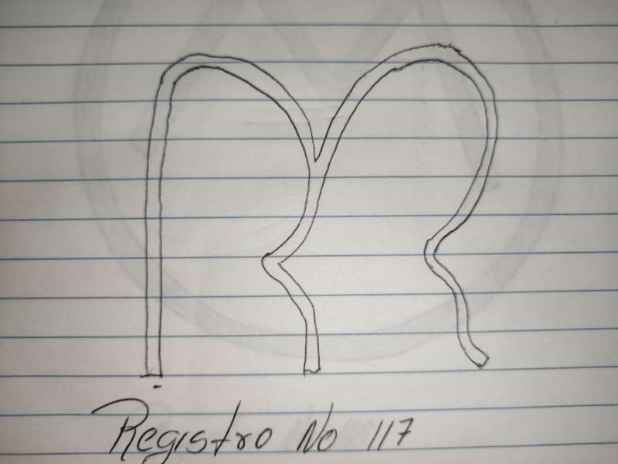 Registro No 117